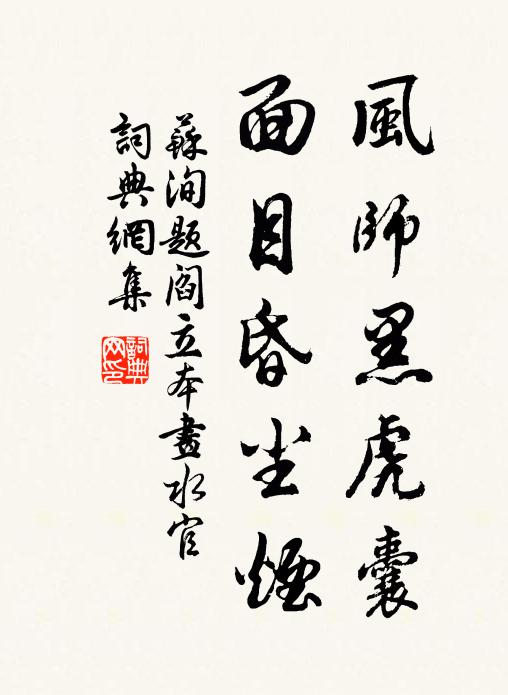 風師黑虎囊
面目昏尘煙
蘇洵題閻立本畫水官
詞典網集
詞典網印